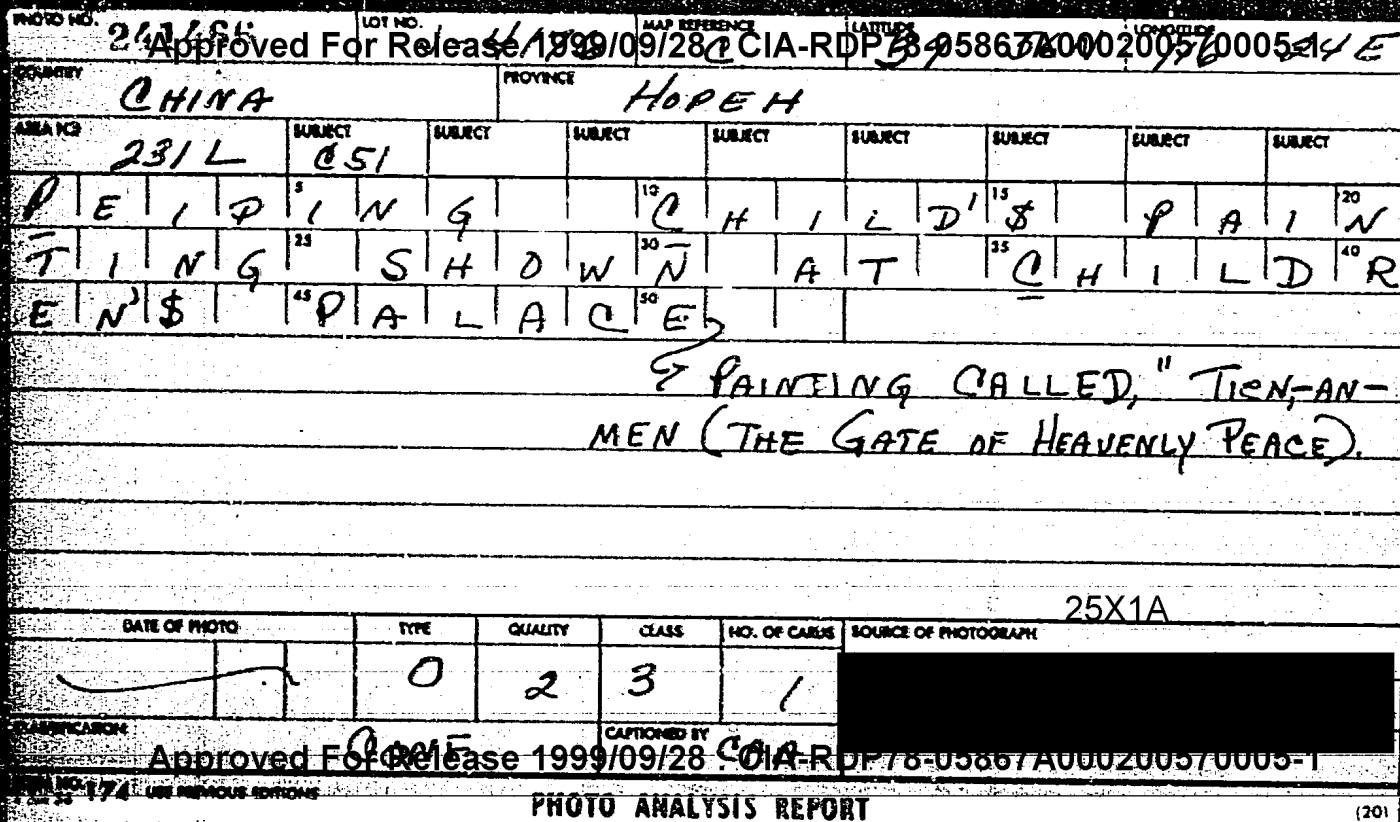 PHOTO NO. LOT NO. MAP REFERENCE LATITUDE LONGITUDE
Approved For Release 1999/09/28 : CIA-RDP78-05867A000200570005-1
COUNTRY PROVINCE
CHINA HOPEH
AREA NO. SUBJECT SUBJECT SUBJECT SUBJECT SUBJECT SUBJECT SUBJECT SUBJECT
231L C51
PEIPING CHILD'$ PAIN
TING SHOWN AT CHILDR
EN'$ PALACE
PAINTING CALLED, "TIEN-AN-
MEN (THE GATE OF HEAVENLY PEACE).
25X1A
DATE OF PHOTO TYPE QUALITY CLASS NO. OF CARDS SOURCE OF PHOTOGRAPH
0 2 3 1
CLASSIFICATION CAPTIONED BY
Approved For Release 1999/09/28 : CIA-RDP78-05867A000200570005-1
FORM NO. 174 USE PREVIOUS EDITIONS
PHOTO ANALYSIS REPORT (20)